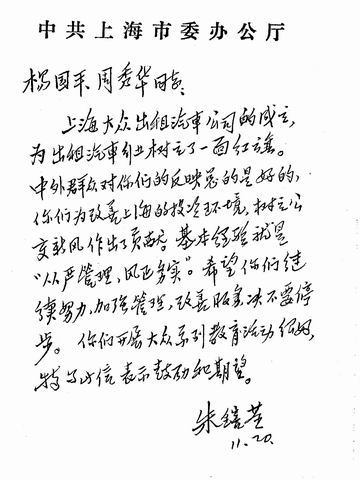 中共上海市委办公厅
杨国平、周秀华同志:
上海大众出租汽車公司的成立,
为出租汽車行业树立了一面红旗。
中外群众对你们的反映总的是好的,
你们为改善上海的投资环境,树立公
交新风作出了贡献。基本经验就是
“从严管理,风正务实”。希望你们继
续努力,加强管理,改善服务,决不要停
步。你们开展大众系列教育活动很好,
特写此信表示鼓励和期望。
朱镕基
11.20.